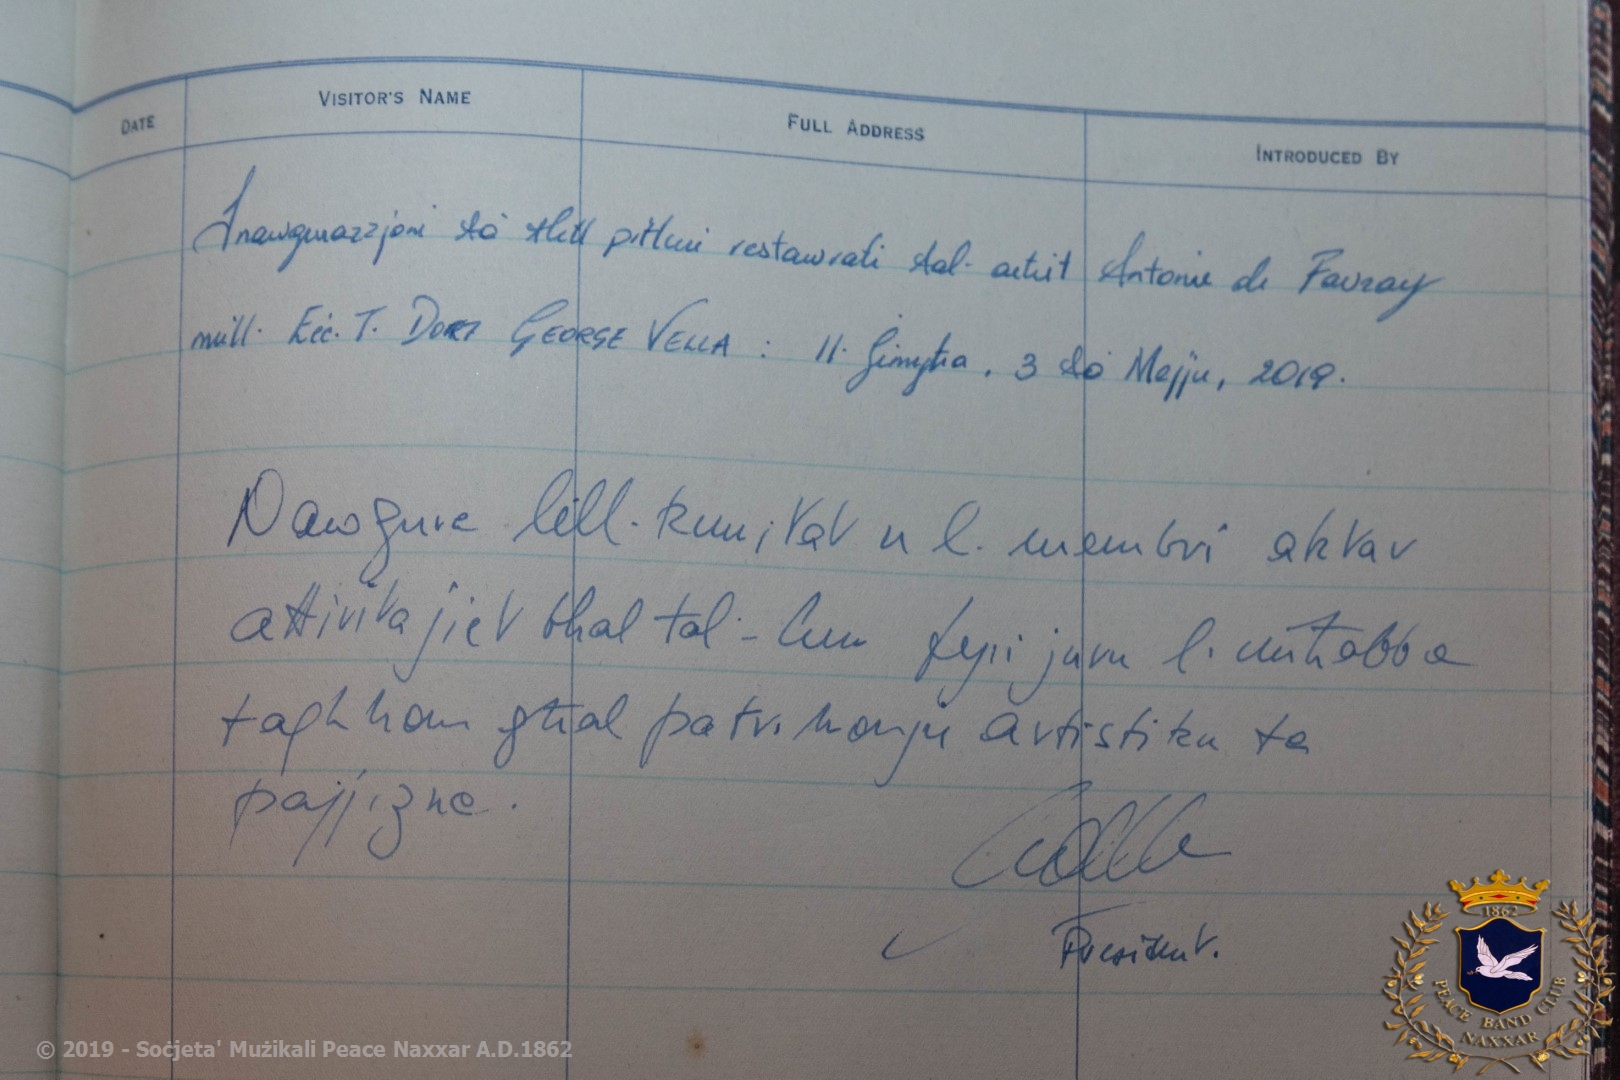 DATE VISITOR'S NAME FULL ADDRESS INTRODUCED BY
Inawgurazzjoni ta' tlett pitturi restawrati tal-artist Antonie de Favray
mill-Eċċ. T. Dott GEORGE VELLA : Il-Ġimgħa, 3 ta' Mejju, 2019.
Nawgura lill-kumitat u l-membri aktar
attivitajiet bħal tal-lum li juru l-imħabba
tagħhom għal patrimonju artistiku ta
pajjiżna.
President.
1862
PEACE BAND CLUB
NAXXAR
© 2019 - Soċjeta' Mużikali Peace Naxxar A.D.1862